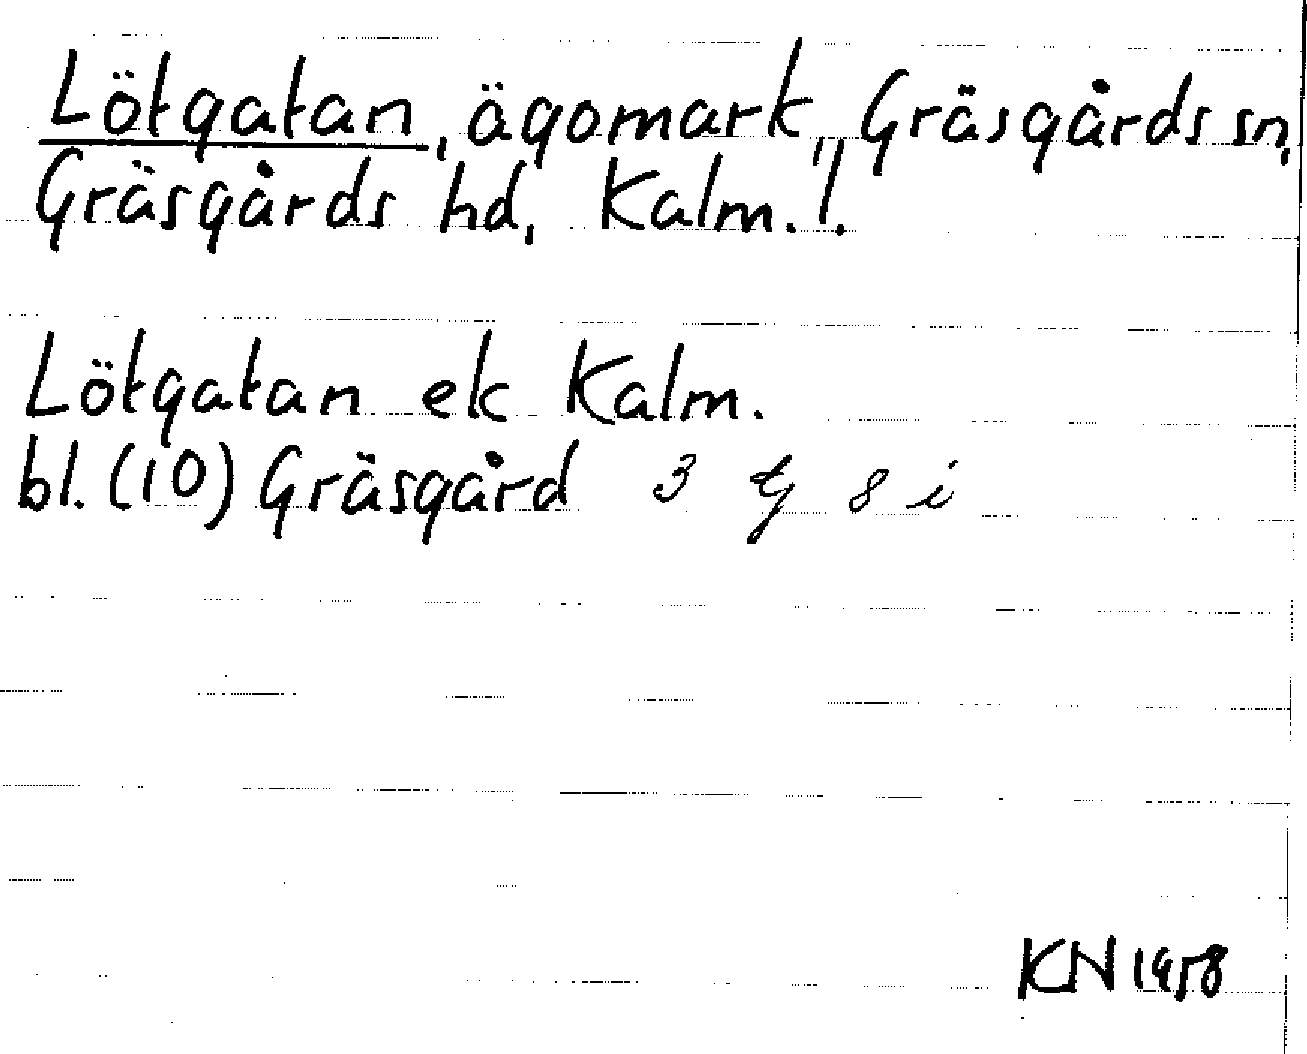 Lötgatan, ägomark, Gräsgårds sn,
Gräsgårds hd, Kalm. l.
Lötgatan ek Kalm.
bl. (10) Gräsgård 3 g 8 i
KN 1958